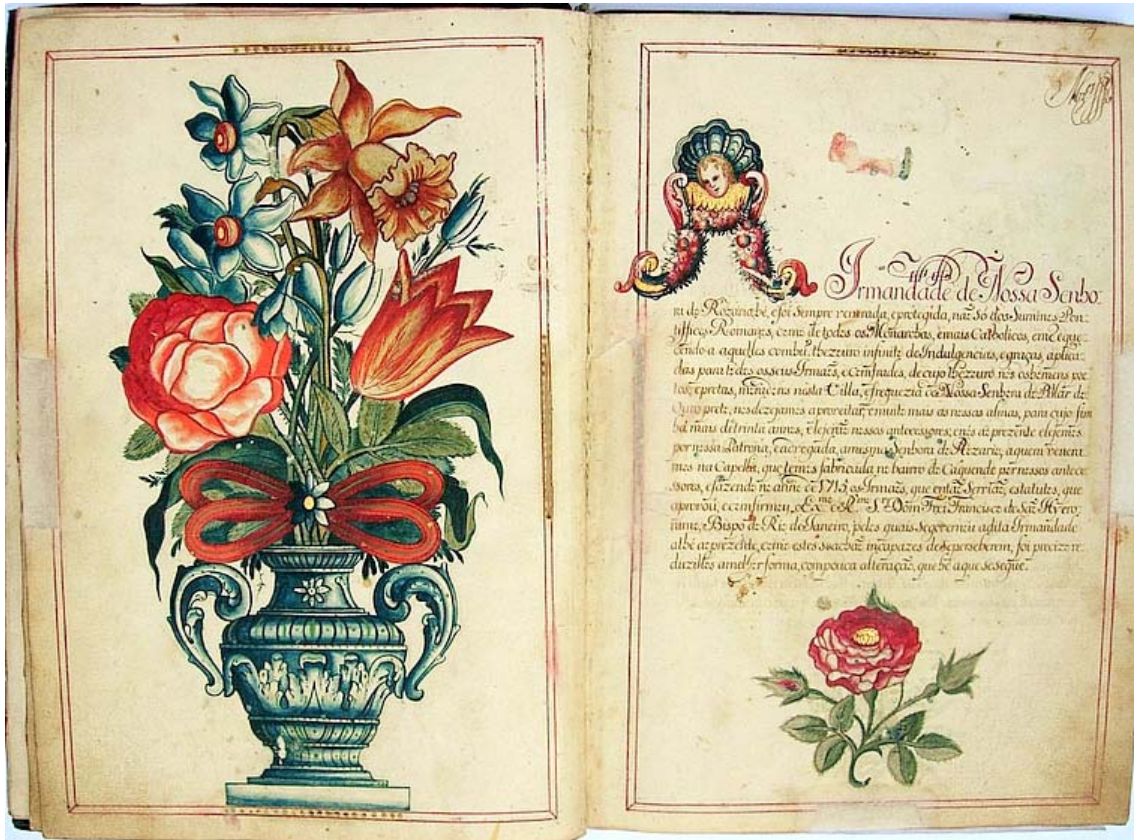 A
Irmandade de Nossa Senho-
ra do Rozario hé, e foi sempre venerada, e protegida, naõ só dos Sumúnos Pon-
tiffices Romanos, como de todos os Monarchas, e mais Catholicos, enrique-
cendo a aquelles com hum thezouro infinito de Indulgencias, e graças, aplica-
das para todos os seus Irmaõs, e Comfrades, de cujo thezouro nós os homens
e pretos, moradores nésta Villa, e freguezia de Nossa Senhora do Pillar do
Ouro preto, nos dezejamos aproveitar, e muito mais as nossas almas, para cujo fim
há mais de trinta annos, elejeraõ nossos antecessores, e nós ao prezente elejemos
por nossa Patrona, e advogada, a mesma Senhora do Rozario, a quem venera-
mos na Capella, que temos fabricada no bairro do Caquende por nossos antece-
ssores, e fazendo no anno de 1715 os Irmaõs, que entaõ Serviaõ, estatutos, que
aprovou, e confirmou o Ex.mo e R.mo S.r Dom Frei Francisco de Saõ Hyero-
nimo, Bispo do Rio de Janeiro, pelos quais se governou a dita Irmandade
athé ao prezente, e como estes se achaõ incapazes de se perseberem, foi precizo re-
duzillos a melhor forma, com pouca alteraçaõ, que hé a que se segue.